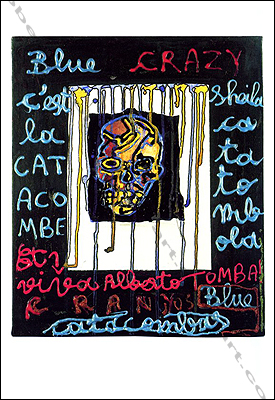 Blue CRAZY
c'est
la
CAT
ACO
MBE
Sheila
ca
ta
to
mbo
la
et
viva Alberto TOMBA
Blue
catacombas